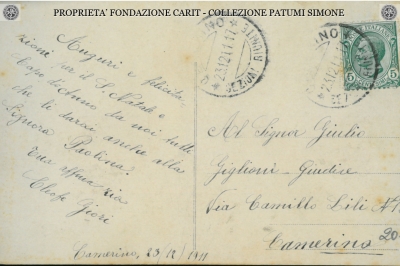 PROPRIETA' FONDAZIONE CARIT - COLLEZIONE PATUMI SIMONE
Auguri e felicita-
zioni per il S. Natale e
Capo d'Anno da noi tutti
che li darai anche alla
Signora Paolina.
Tua
Giori
Camerino, 23/12/911
23.12.11.17
5
5
Al Signor Giulio
Giglioni - Giudice
Via Camillo Lili N°
Camerino
20